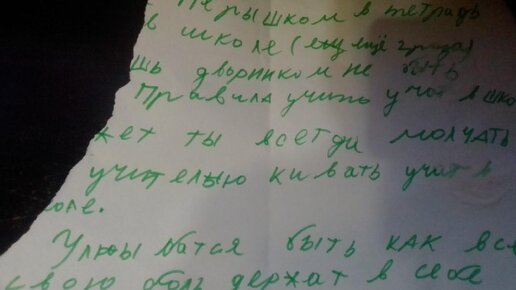 Пёрышком в тетрадь
в школе (ему ещё
шь дворником не быть
Правила учить учат в шко
жет ты всегда молчать
учителью кивать учат в
оле.
Улюбы батся быть как все
свою боль держат в себе